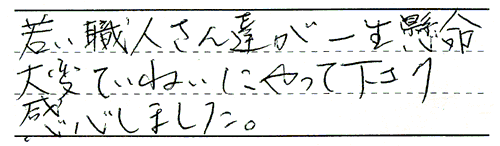 若い職人さん達が一生懸命
大変ていねいにやって下さり
感心しました。